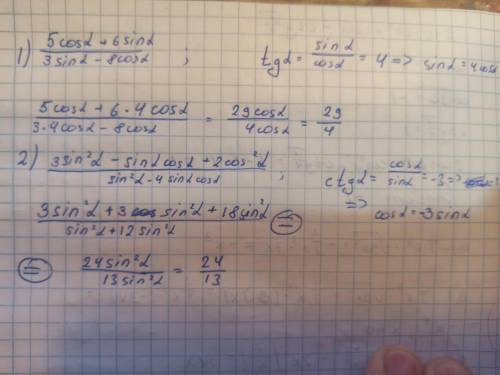 1) (5cosα + 6sinα)/(3sinα − 8cosα) ; tgα = sinα/cosα = 4 => sinα = 4cosα
(5cosα + 6·4cosα)/(3·4cosα − 8cosα) = 29cosα/4cosα = 29/4
2) (3sin²α − sinα cosα + 2cos²α)/(sin²α − 4sinα cosα) ; ctgα = cosα/sinα = −3 =>
=> cosα = −3sinα
(3sin²α + 3sin²α + 18sin²α)/(sin²α + 12sin²α) =
= 24sin²α/13sin²α = 24/13